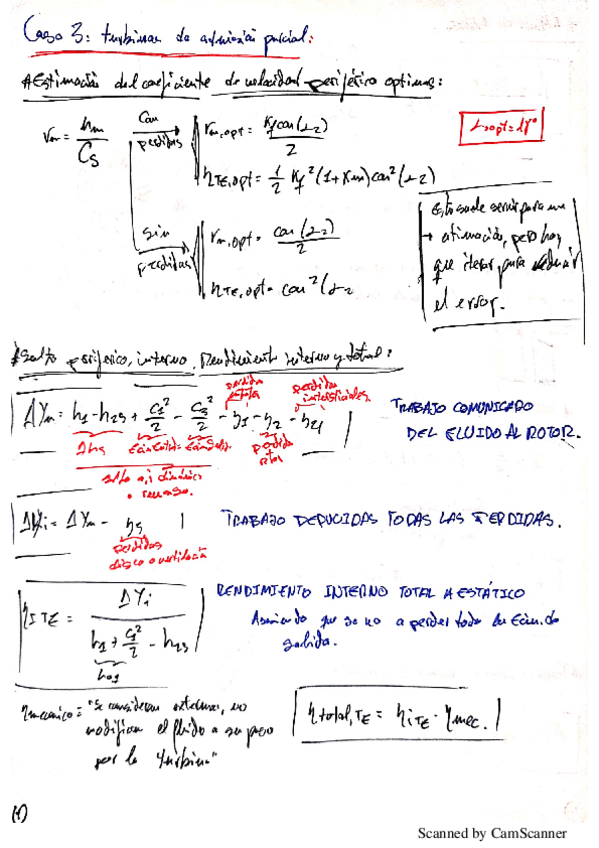 Caso 3: turbinas de admisión parcial:
* Estimación del coeficiente de velocidad periférico optimas:
rm = um / Cs
Con pérdidas
rm,opt = Kf cos(α2) / 2
ηTE,opt = 1/2 Kf² (1+Km) cos²(α2)
sin pérdidas
rm,opt = cos(α2) / 2
ηTE,opt = cos²(α2
Esto suele servir para una
→ estimación, pero hay
que iterar, para reducir
el error.
* Salto periférico, interno, Rendimiento interno y total:
pérdidas
pérdidas intersticiales
ΔYm = h1 - h2s + C1²/2 - C3²/2 - y1 - y2 - y4
Δhs
pérdida rotor
TRABAJO COMUNICADO
DEL FLUIDO AL ROTOR.
ΔYi = ΔYm - y5
pérdidas
disco o ventilación
TRABAJO DEDUCIDAS TODAS LAS PERDIDAS.
ηiTE = ΔYi / (h1 + C1²/2 - h2s)
h01
RENDIMIENTO INTERNO TOTAL A ESTÁTICO
Asumiendo que se va a perder toda la E.cin. de
salida.
ηmecánico = "Se consideran externas, no
modifican el fluido a su paso
por la turbina"
ηtotal,TE = ηiTE · ηmec.
(1)
Scanned by CamScanner